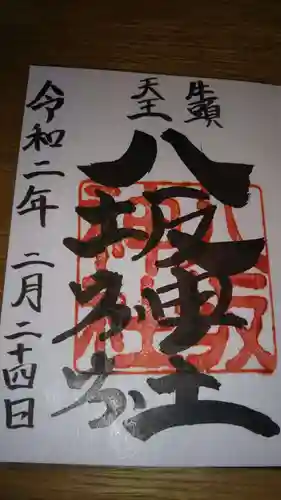 牛頭
天王
八坂神社
八坂
神社
令和二年 二月二十四日